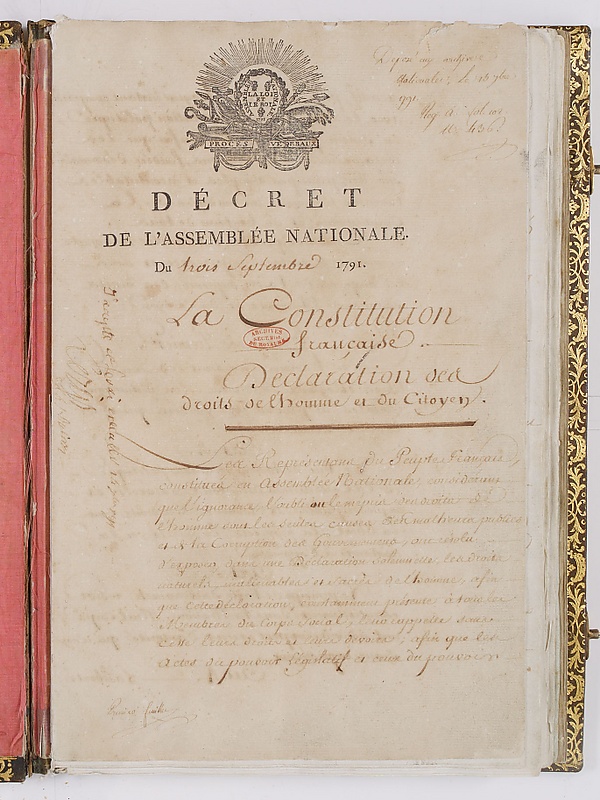 LA LOI
ET
LE ROI
PROCÈS VERBAUX
Nationales, le
1791.
DÉCRET
DE L'ASSEMBLÉE NATIONALE.
Du trois Septembre 1791.
La Constitution
française
ARCHIVES
DU ROYAUME
Déclaration des
droits de l'homme et du Citoyen.
Les Représentans du Peuple français,
constitués en Assemblée Nationale, considérant
que l'ignorance, l'oubli ou le mépris des droits de
l'homme sont les seules causes des malheurs publics
et de la Corruption des Gouvernemens, ont résolu
d'exposer dans une déclaration solemnelle, les droits
naturels, inaliénables et sacrés de l'homme, afin
que cette déclaration, constamment présente à tous les
Membres du Corps Social, leur rappelle sans
cesse leurs droits et leurs devoirs; afin que les
Actes du pouvoir législatif et ceux du pouvoir
J'accepte et ferai exécuter